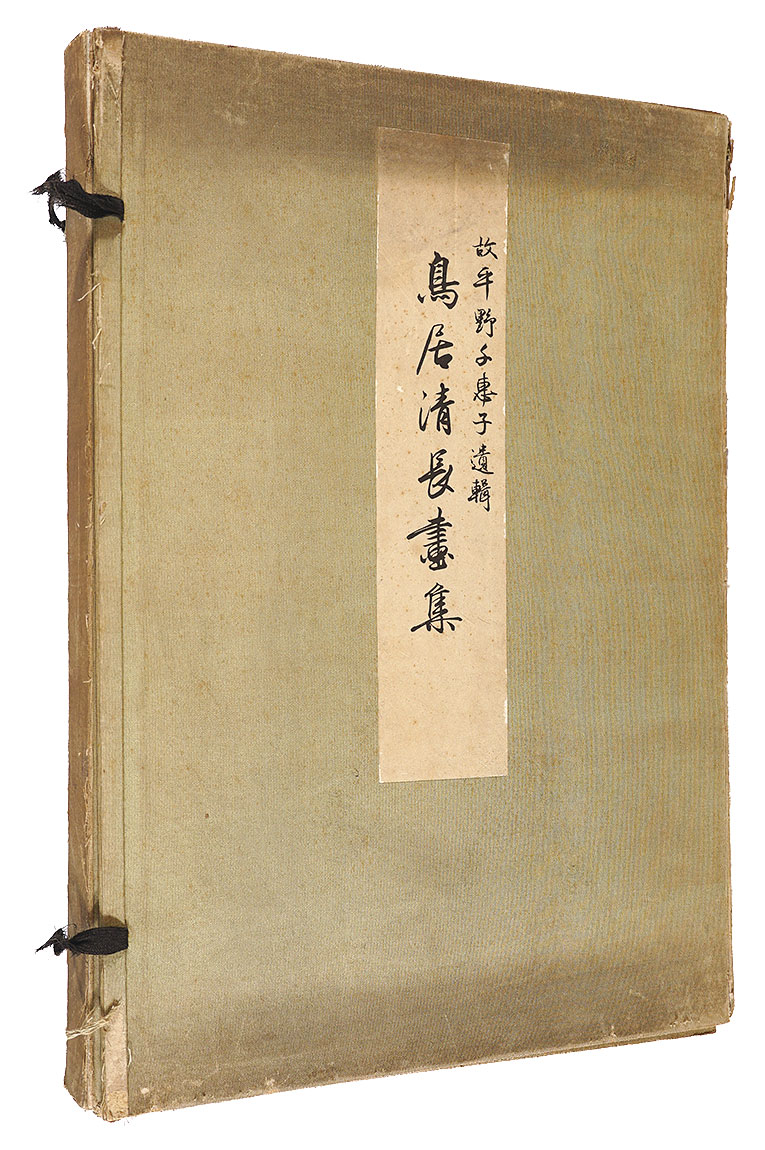 故平野千惠子遺輯
鳥居清長畫集